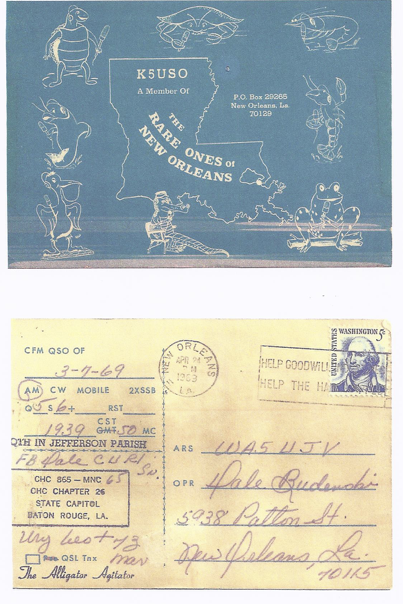 K5USO
A Member Of
THE
RARE ONES of
NEW ORLEANS
P.O. Box 29265
New Orleans, La.
70129
CFM QSO OF
3-7-69
AM CW MOBILE 2XSSB
Q 5 S 6+ RST
CST
1939 GMT 50 MC
QTH IN JEFFERSON PARISH
FB Dale C U Rl
Sn.
CHC 865 – MNC 65
CHC CHAPTER 26
STATE CAPITOL
BATON ROUGE, LA.
Very best 73
QSL Tnx
The Alligator Agitator
NEW ORLEANS
APR 24
LA.
HELP GOODWILL
HELP THE HA
UNITED STATES
WASHINGTON 5c
ARS WA5UJV
OPR Dale
5938 Patton St.
New Orleans, La.
70115